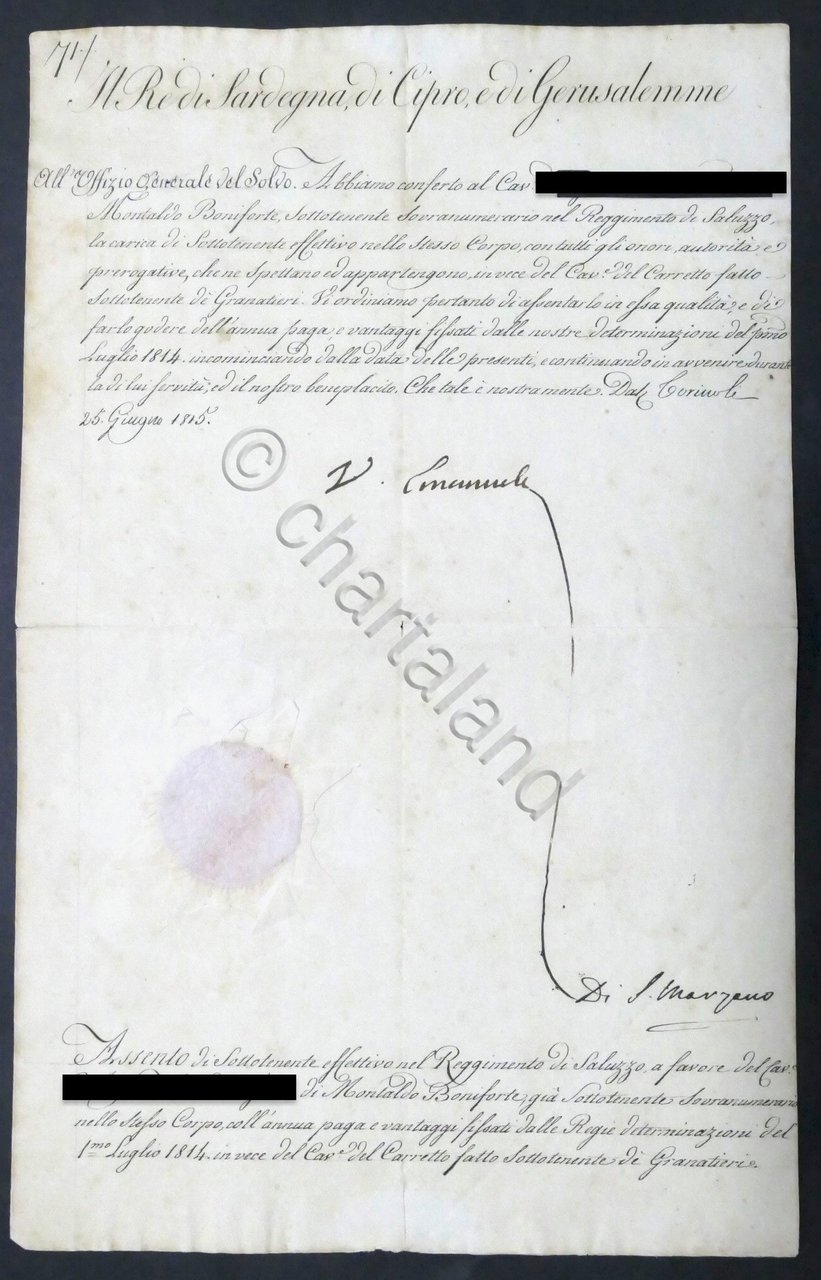 71
Il Re di Sardegna, di Cipro, e di Gerusalemme
All' Uffizio Generale del Soldo. Abbiamo conferto al Cav.
Montaldo Boniforte, Sottotenente Sovranumerario nel Reggimento di Saluzzo,
la carica di Sottotenente effettivo nello stesso Corpo, con tutti gli onori, autorità, e
prerogative, che ne spettano ed appartengono, in vece del Cav.e del Carretto fatto
Sottotenente de' Granatieri. Vi ordiniamo pertanto di assentarlo in essa qualità, e di
farlo godere dell'annua paga, e vantaggi fissati dalle nostre determinazioni del primo
Luglio 1814. incominciando dalla data delle presenti, e continuando in avvenire durante
la di lui servitù, ed il nostro beneplacito. Che tale è nostra mente. Dat. Torino li
25. Giugno 1815.
V. Emanuele
© chartaland
Di S. Marzano
Assento di Sottotenente effettivo nel Reggimento di Saluzzo, a favore del Cav.e
di Montaldo Boniforte, già Sottotenente Sovranumerario
nello stesso Corpo, coll'annua paga e vantaggi fissati dalle Regie determinazioni del
1.mo Luglio 1814. in vece del Cav.e del Carretto fatto Sottotenente di Granatieri.